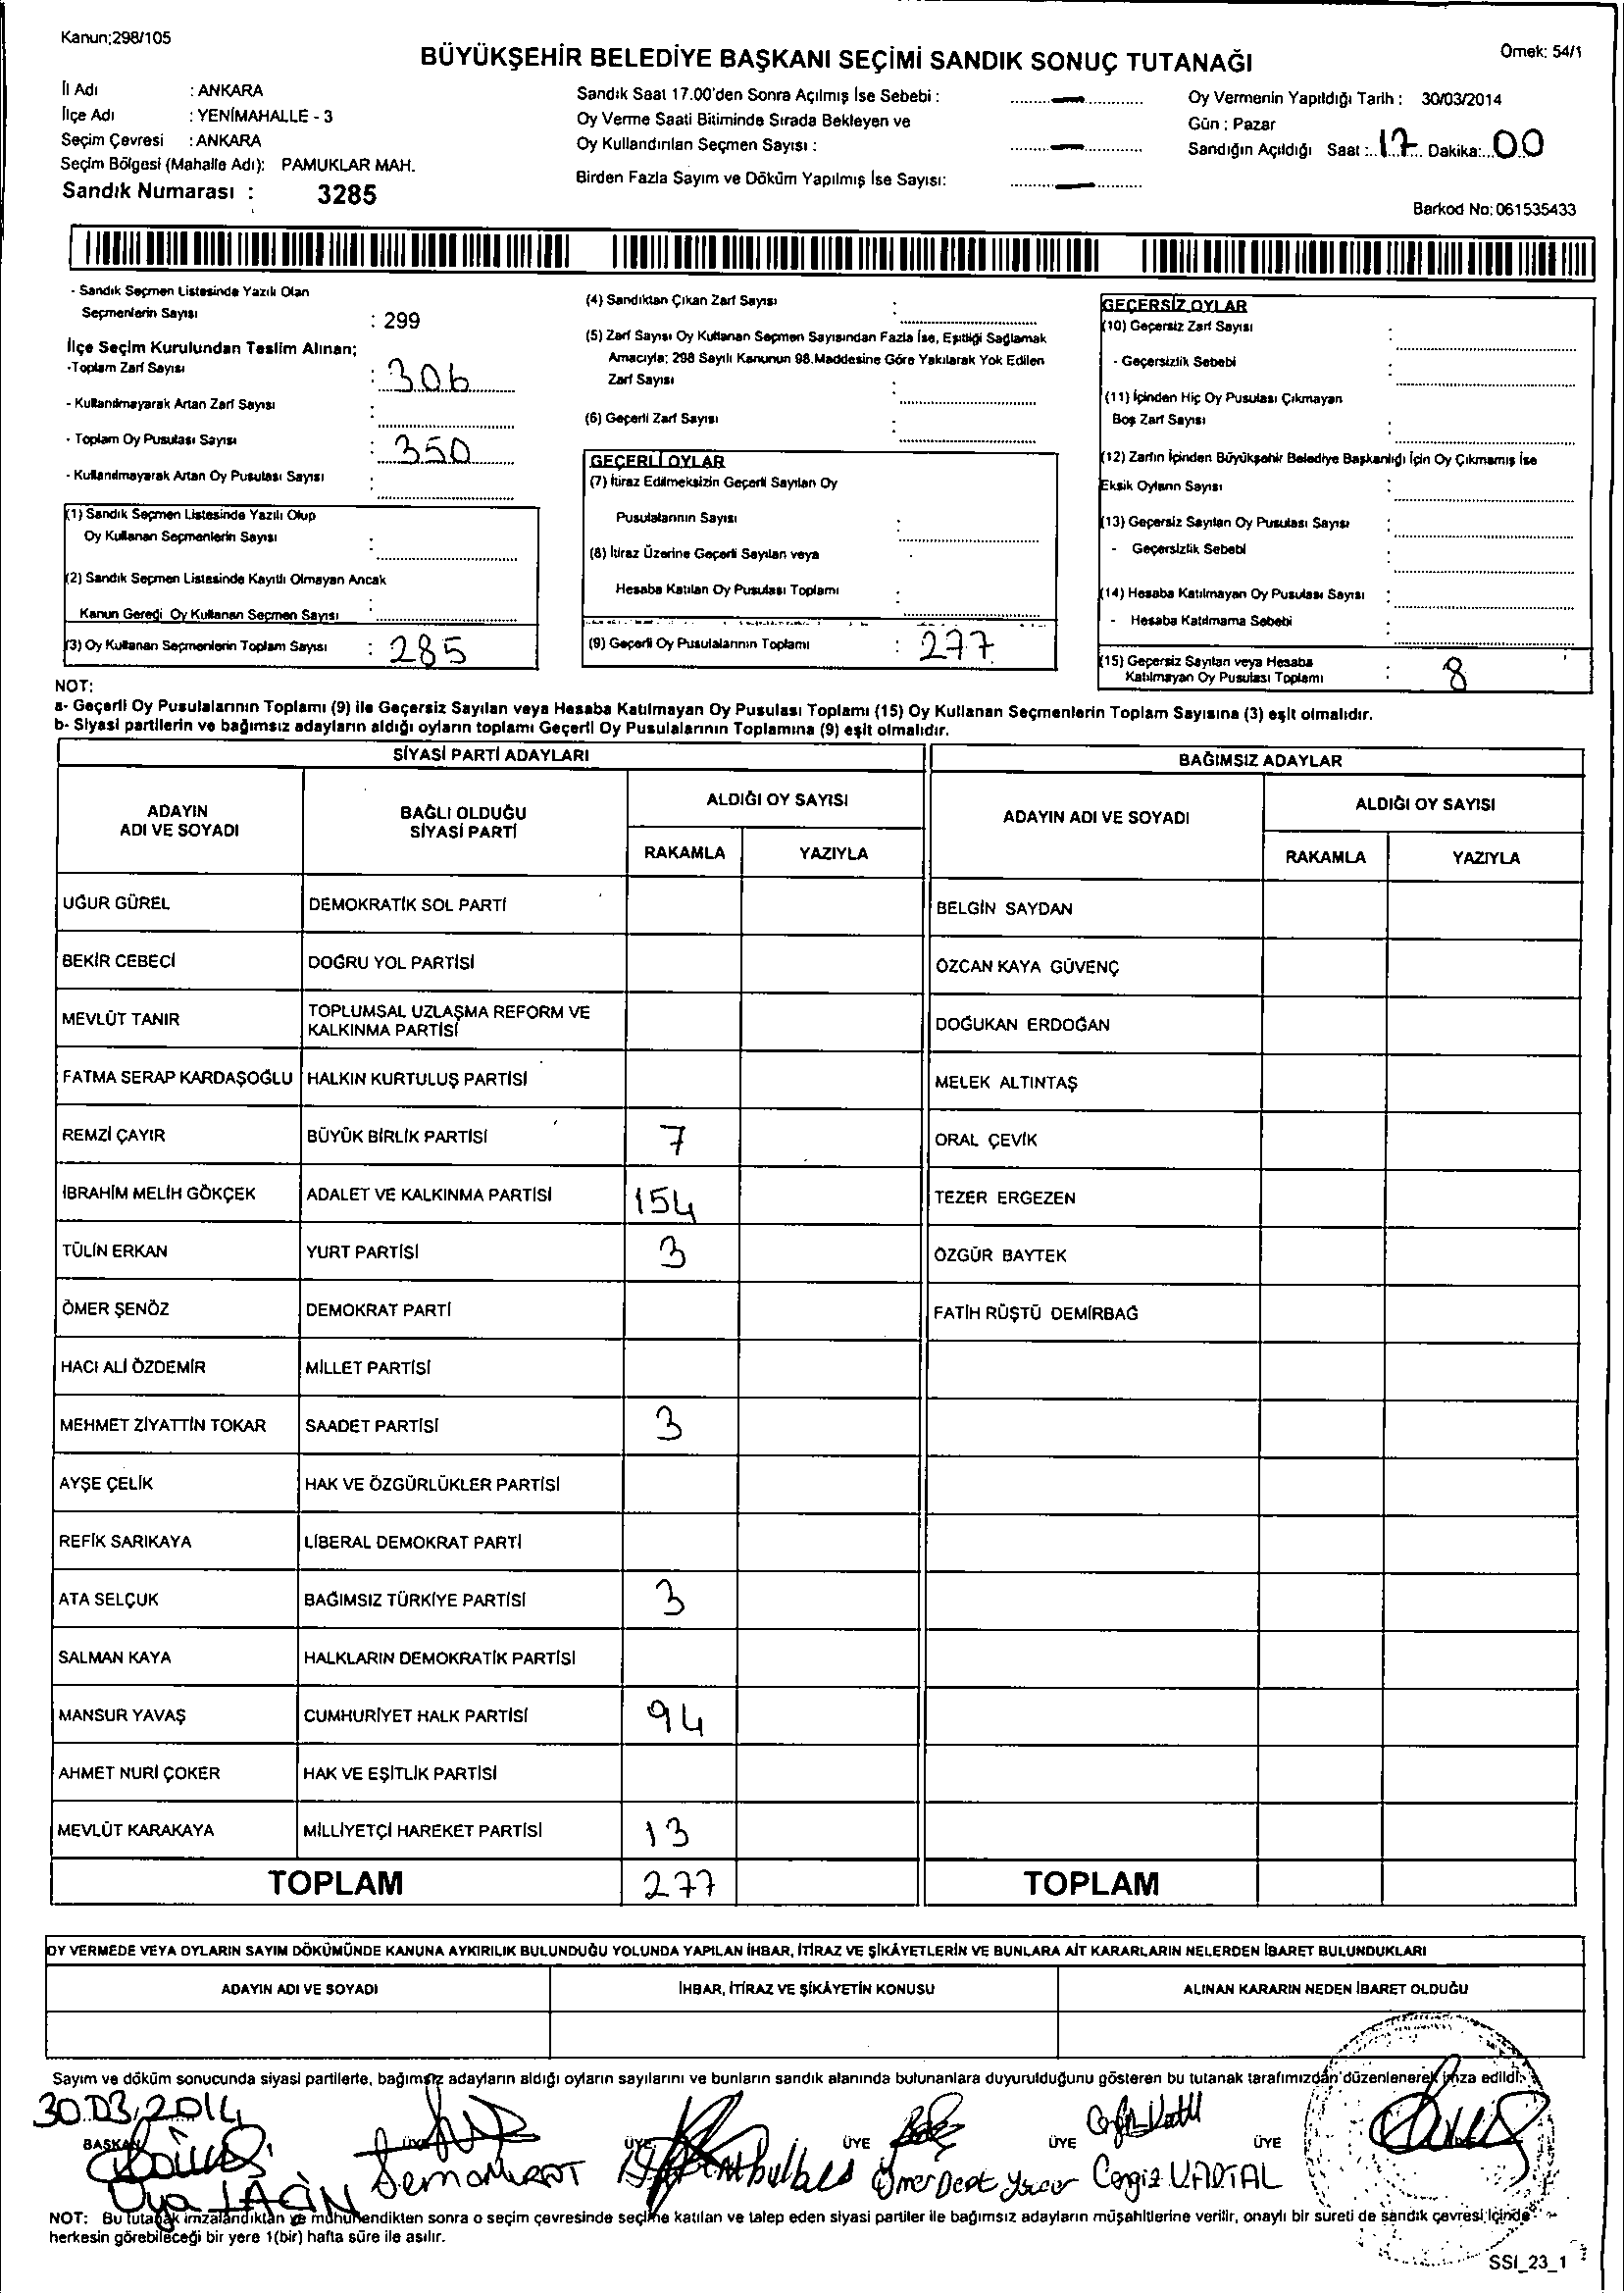 Kanun;298/105
Örnek: 54/1
BÜYÜKŞEHİR BELEDİYE BAŞKANI SEÇİMİ SANDIK SONUÇ TUTANAĞI
İl Adı : ANKARA
İlçe Adı : YENİMAHALLE - 3
Seçim Çevresi : ANKARA
Seçim Bölgesi (Mahalle Adı): PAMUKLAR MAH.
Sandık Numarası : 3285
Sandık Saat 17.00'den Sonra Açılmış İse Sebebi :
Oy Verme Saati Bitiminde Sırada Bekleyen ve
Oy Kullandırılan Seçmen Sayısı :
Birden Fazla Sayım ve Döküm Yapılmış İse Sayısı:
Oy Vermenin Yapıldığı Tarih : 30/03/2014
Gün : Pazar
Sandığın Açıldığı Saat :..17.. Dakika:..00
Barkod No:061535433
- Sandık Seçmen Listesinde Yazılı Olan
Seçmenlerin Sayısı : 299
İlçe Seçim Kurulundan Teslim Alınan;
-Toplam Zarf Sayısı : 306
- Kullanılmayarak Artan Zarf Sayısı :
- Toplam Oy Pusulası Sayısı : 350
- Kullanılmayarak Artan Oy Pusulası Sayısı :
(1) Sandık Seçmen Listesinde Yazılı Olup
Oy Kullanan Seçmenlerin Sayısı :
(2) Sandık Seçmen Listesinde Kayıtlı Olmayan Ancak
Kanun Gereği Oy Kullanan Seçmen Sayısı :
(3) Oy Kullanan Seçmenlerin Toplam Sayısı : 285
(4) Sandıktan Çıkan Zarf Sayısı :
(5) Zarf Sayısı Oy Kullanan Seçmen Sayısından Fazla İse, Eşitliği Sağlamak
Amacıyla; 298 Sayılı Kanunun 98.Maddesine Göre Yakılarak Yok Edilen
Zarf Sayısı :
(6) Geçerli Zarf Sayısı :
GEÇERLİ OYLAR
(7) İtiraz Edilmeksizin Geçerli Sayılan Oy
Pusulalarının Sayısı :
(8) İtiraz Üzerine Geçerli Sayılan veya
Hesaba Katılan Oy Pusulası Toplamı :
(9) Geçerli Oy Pusulalarının Toplamı : 277
GEÇERSİZ OYLAR
(10) Geçersiz Zarf Sayısı :
- Geçersizlik Sebebi :
(11) İçinden Hiç Oy Pusulası Çıkmayan
Boş Zarf Sayısı :
(12) Zarfın İçinden Büyükşehir Belediye Başkanlığı İçin Oy Çıkmamış İse
Eksik Oyların Sayısı :
(13) Geçersiz Sayılan Oy Pusulası Sayısı :
- Geçersizlik Sebebi :
(14) Hesaba Katılmayan Oy Pusulası Sayısı :
- Hesaba Katılmama Sebebi :
(15) Geçersiz Sayılan veya Hesaba
Katılmayan Oy Pusulası Toplamı : 8
NOT:
a- Geçerli Oy Pusulalarının Toplamı (9) ile Geçersiz Sayılan veya Hesaba Katılmayan Oy Pusulası Toplamı (15) Oy Kullanan Seçmenlerin Toplam Sayısına (3) eşit olmalıdır.
b- Siyasi partilerin ve bağımsız adayların aldığı oyların toplamı Geçerli Oy Pusulalarının Toplamına (9) eşit olmalıdır.
SİYASİ PARTİ ADAYLARI
BAĞIMSIZ ADAYLAR
ADAYIN
ADI VE SOYADI
BAĞLI OLDUĞU
SİYASİ PARTİ
ALDIĞI OY SAYISI
RAKAMLA YAZIYLA
ADAYIN ADI VE SOYADI
ALDIĞI OY SAYISI
RAKAMLA YAZIYLA
UĞUR GÜREL DEMOKRATİK SOL PARTİ BELGİN SAYDAN
BEKİR CEBECİ DOĞRU YOL PARTİSİ ÖZCAN KAYA GÜVENÇ
MEVLÜT TANIR TOPLUMSAL UZLAŞMA REFORM VE
KALKINMA PARTİSİ DOĞUKAN ERDOĞAN
FATMA SERAP KARDAŞOĞLU HALKIN KURTULUŞ PARTİSİ MELEK ALTINTAŞ
REMZİ ÇAYIR BÜYÜK BİRLİK PARTİSİ 7 ORAL ÇEVİK
İBRAHİM MELİH GÖKÇEK ADALET VE KALKINMA PARTİSİ 154 TEZER ERGEZEN
TÜLİN ERKAN YURT PARTİSİ 3 ÖZGÜR BAYTEK
ÖMER ŞENÖZ DEMOKRAT PARTİ FATİH RÜŞTÜ DEMİRBAĞ
HACI ALİ ÖZDEMİR MİLLET PARTİSİ
MEHMET ZİYATTİN TOKAR SAADET PARTİSİ 3
AYŞE ÇELİK HAK VE ÖZGÜRLÜKLER PARTİSİ
REFİK SARIKAYA LİBERAL DEMOKRAT PARTİ
ATA SELÇUK BAĞIMSIZ TÜRKİYE PARTİSİ 3
SALMAN KAYA HALKLARIN DEMOKRATİK PARTİSİ
MANSUR YAVAŞ CUMHURİYET HALK PARTİSİ 94
AHMET NURİ ÇOKER HAK VE EŞİTLİK PARTİSİ
MEVLÜT KARAKAYA MİLLİYETÇİ HAREKET PARTİSİ 13
TOPLAM 277 TOPLAM
OY VERMEDE VEYA OYLARIN SAYIM DÖKÜMÜNDE KANUNA AYKIRILIK BULUNDUĞU YOLUNDA YAPILAN İHBAR, İTİRAZ VE ŞİKÂYETLERİN VE BUNLARA AİT KARARLARIN NELERDEN İBARET BULUNDUKLARI
ADAYIN ADI VE SOYADI İHBAR, İTİRAZ VE ŞİKÂYETİN KONUSU ALINAN KARARIN NEDEN İBARET OLDUĞU
Sayım ve döküm sonucunda siyasi partilerle, bağımsız adayların aldığı oyların sayılarını ve bunların sandık alanında bulunanlara duyurulduğunu gösteren bu tutanak tarafımızdan düzenlenerek imza edildi.
30.03.2014
BAŞKAN ÜYE ÜYE ÜYE ÜYE ÜYE
Oya LAÇİN Cengiz VARTAL
NOT: Bu tutanak imzalandıktan ve mühürlendikten sonra o seçim çevresinde seçime katılan ve talep eden siyasi partiler ile bağımsız adayların müşahitlerine verilir, onaylı bir sureti de sandık çevresi içinde
herkesin görebileceği bir yere 1(bir) hafta süre ile asılır.
SSI_23_1